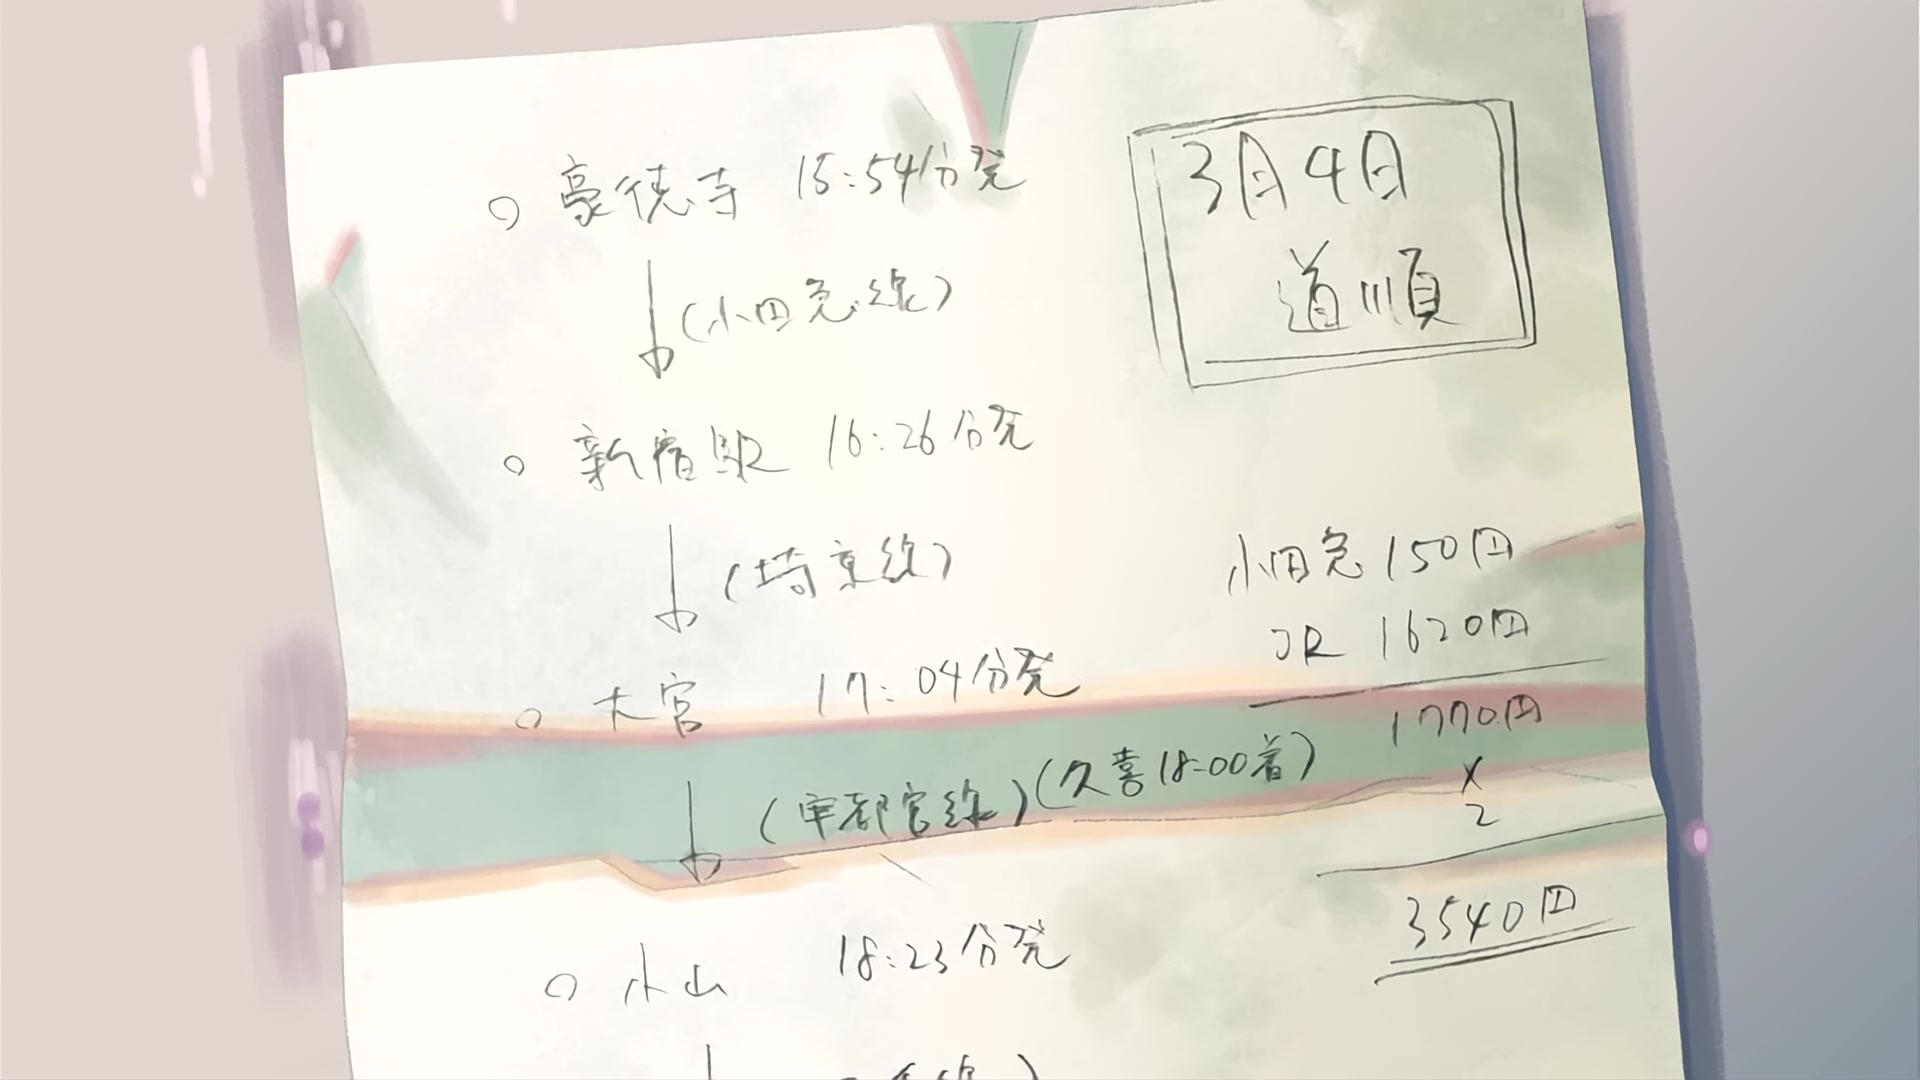 3月4日
道順
豪徳寺 15:54分発
(小田急線)
新宿駅 16:26分発
(埼京線)
大宮 17:04分発
(宇都宮線)(久喜18:00着)
小山 18:23分発
小田急 150円
JR 1620円
1770円
×
2
3540円